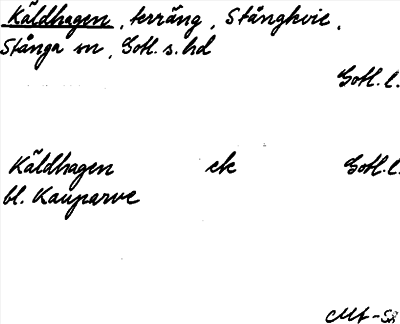 Käldhagen, terräng, Stångkvie,
Stånga sn, Gotl. s. hd
Gotl. l.
Käldhagen ek Gotl. l.
bl. Kauparve